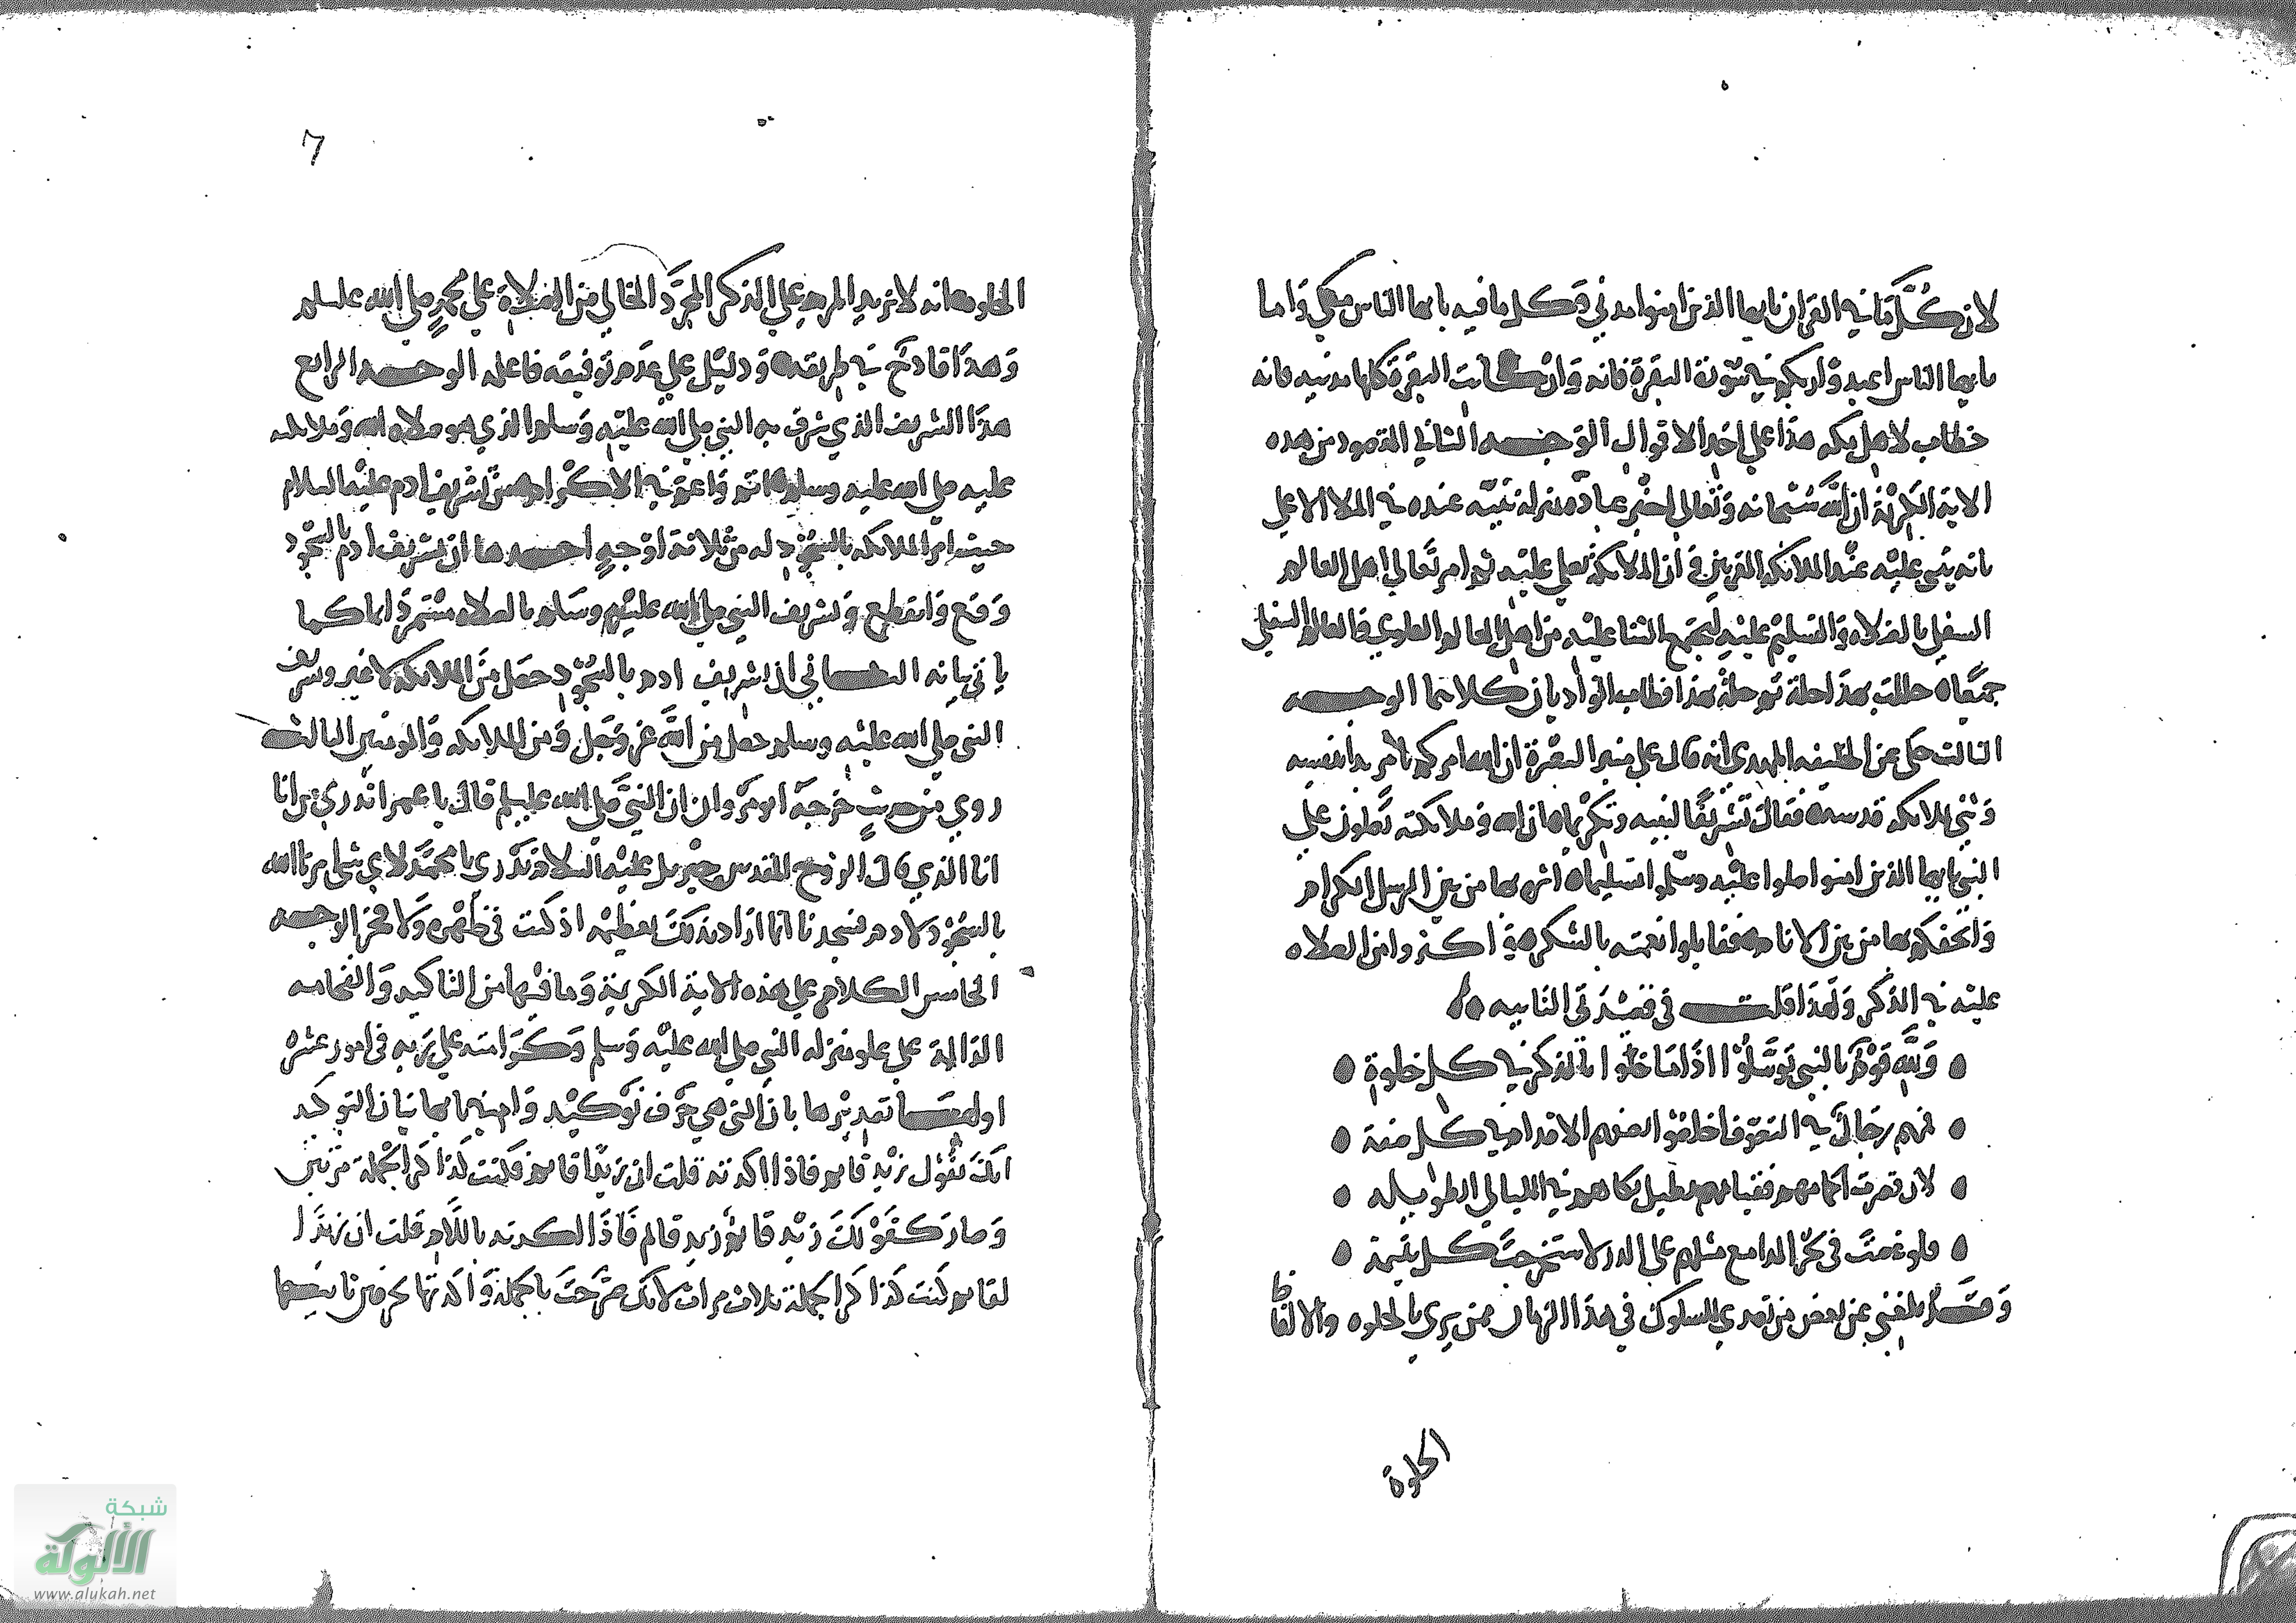 لان كُلَّ مَا في القرآن يا ايها الذين امنوا مدني وكل ما فيه يا ايها الناس مكي وَاما
يا ايها الناس اعبدوا ربكم في سورة البقرة فانه وَان كانت البقرة كلها مدنيه فانه
خطاب لاهل مكه هذا على احَد الاقوال الوَجه الثاني المقصود من هذه
الاية الكريمة ان الله سُبحانه وَتعالى اخبر عباده منزلة نبيّه عنده في الملا الاعلى
بانه يثني عليْه عنْد الملائكه المقربين وَ ان الملائكة تصلي عليْه ثم امر تعالى اهل العالم
السفلي بالصلاه وَالتسليم عليْه ليجمع الثنا عليْه من اهل العالم العلوي وَالعالم السفلي
جميعًا ه
الثالث حكي عن الخليفه المهدي انه قال على منبر البصْرة ان الله امركم بامر بدا بنفسه
وَثنى بملائكة قدسه فقال تَشريفًا لنبيه وَتكريما ان الله وَملائكته يصلون على
النبي يا ايها الذين امنوا صلوا عليْه وسلموا تسليما ه اثره بها من بين الرسل الكرام
وَاتحفكم بها من بين الانام فقابلوا نعمته بالشكر وَ اكثروا من الصلاه
عليْه في الذكر وَلهذا قلت في قصْيدَتي التائيه
وَللَّه قوْمٌ بالنبي توسَّلُوا اذَا مَا خلوا بالذكر في كل خلوةٍ
فهم رجالٌ في التصوف اخلصُوا لهم الاقدام في كل صفة
لان قصرت
ولو غصتَ في بحْر المدامع مثلهم على الدر لاستخرجتَ كل يتيمة
وَقَد بلغني عن بعض من تصدى للسلوك في هذا الزمان ممن يرى بالخلوه والا
الخلوة
٦
الخلوه انه لا يزيد المريد على الذكر المجرَّد الخالي من الصلاة على محمدٍ صلى الله عليه وسلم
وَهذَا قادحٌ في طريقته وَ دليْل على عدَم توفيقه فاعلمه الوجه الرابع
هذَا التشريف الذي شرف به النبي صلى الله عليْه وَسلم الذي هو صلاه الله وَملائكته
عليه صلى الله عليه وسلم اتم وَاعم في الاكرام من تشريف ادم عليْه السلام
حيث امرَ الملائكه بالسجُود له من ثلاثة اوْجهٍ احدها ان تشريف ادم بالسجُود
وَقع وَانقطع وَتشريف النبي صلى الله عليْه وسَلم بالصلاه مُستمرٌ دَايما كما
ياتي بيانه الثاني ان تشريف ادم بالسجُود حصَل منَ الملائكة لا غير وتشريف
النبي صلى الله عليْه وسلم حصل من اللَّه عز وَجل وَمن الملائكه وَالمومنين الثالث
روي من حديثٍ خرجه ابن مرْدوان ان النبيَّ صلى الله عليه وسلم قال يا عمر اتدري من انا
انا الذي قال الروح القدس جبْريل عليْه السلام تدري يا محمَّد لاي شي امرنا الله
بالسجُود لادم فسجدنا انما ارَاد بذلكَ تعظيْمه اذ كنت في ظهْره وَلا فخر الوجه
الخامس الكلام على هذه الاية الكريمَة وَما فيْها من التاكيد وَالفخامه
الدالة على علو منزلة النبي صلى الله عليْه وَسلم وَكرَامته على رَبه في امور عشره
اولها تصديْرها بانَّ التي هي حرْف توْكيْد وَامضيا بها بيان التوكيد
انكَ تقُول زيْد قايم فاذا اكدته قلت ان زيْدًا قايم فكنت كذَا كرا الجمْلة مرّتين
وَصار كقوْلكَ زيْد قايم زيد قايم فَاذَا اكدته باللاَم قلت ان زيْدًا
لقايم كنت كذَا كرا الجملة ثلاث مرات لانك صَرَّحتَ بالجملة وَاكدتها بحرفين نابت
شبكة
الألوكة
www.alukah.net